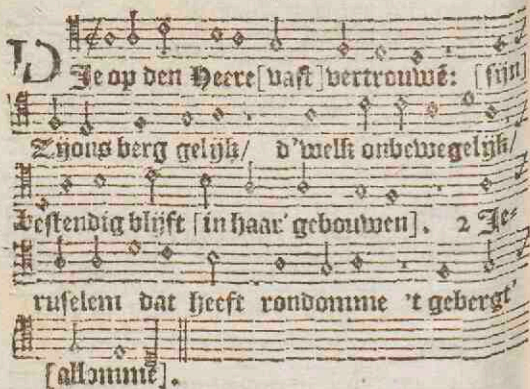 DJe op den Heere [vast] vertrouwē: [sijn]
Zijons berg gelijk/ d'welk onbewegelijk/
bestendig blijft [in haar' gebouwen]. 2 Je-
ruselem dat heeft rondomme 't gebergt'
[allommē].